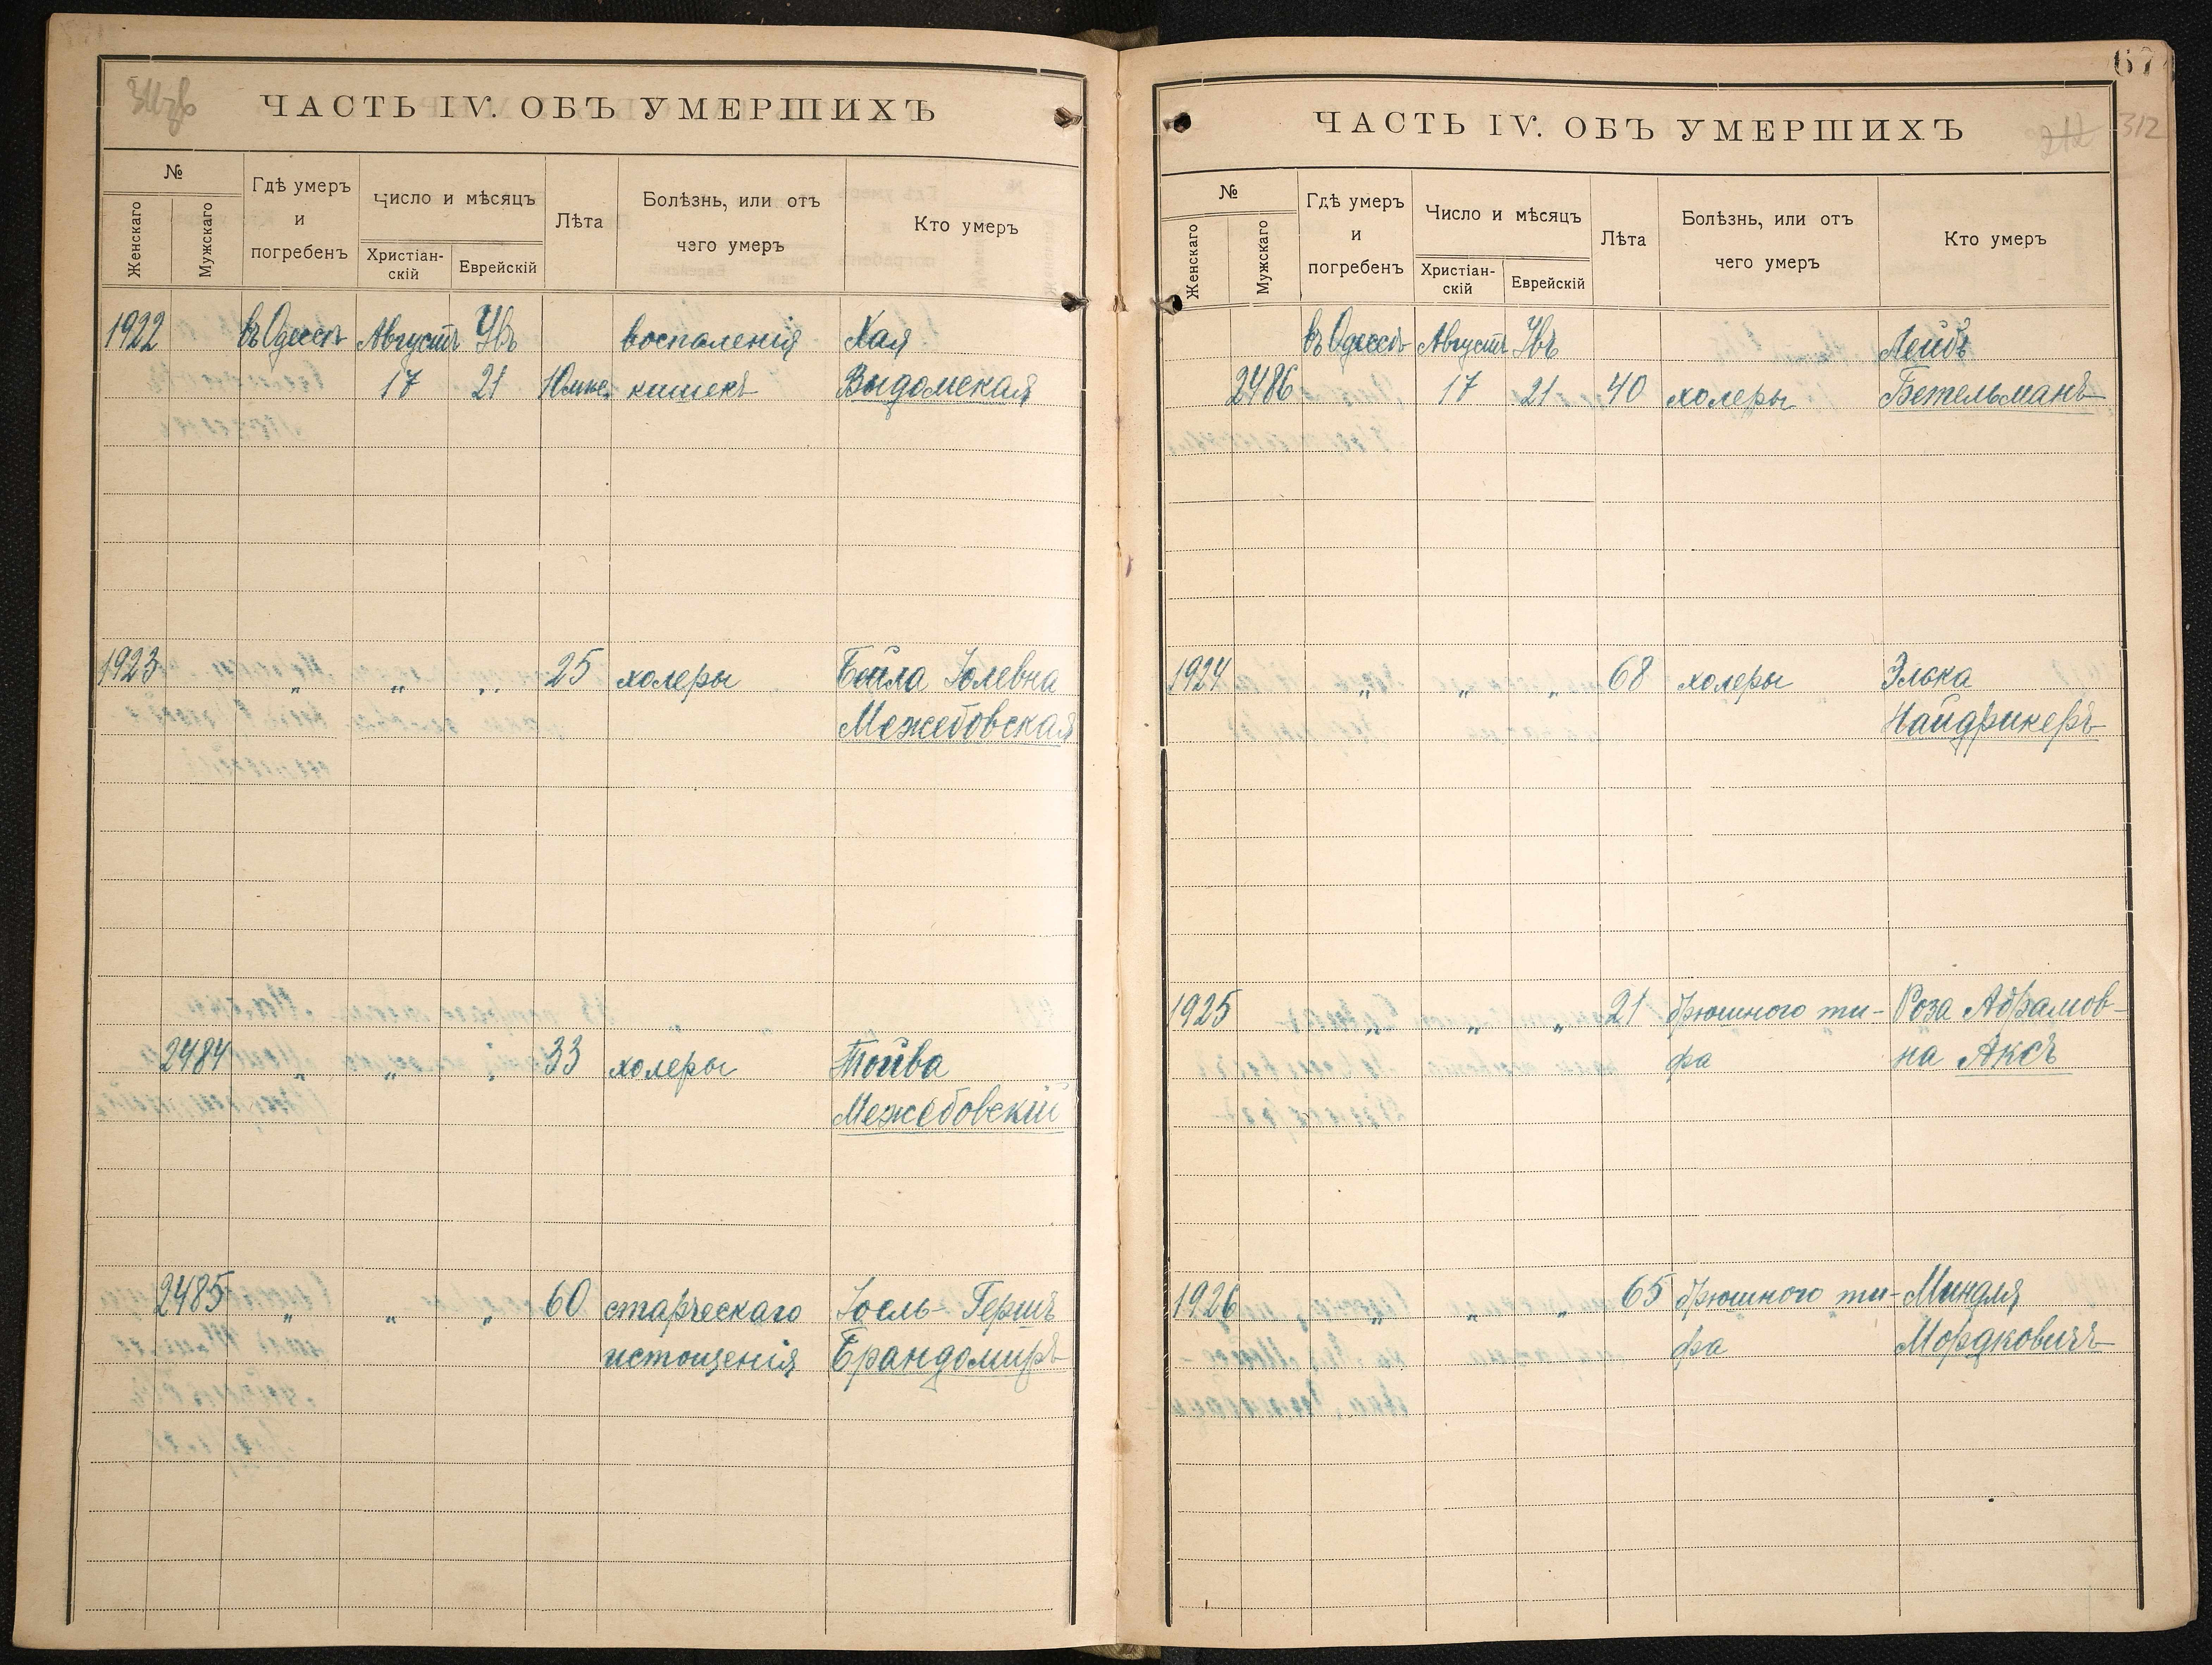 311 об
ЧАСТЬ IV. ОБЪ УМЕРШИХЪ
№
Женскаго
Мужскаго
Гдѣ умеръ
и
погребенъ
Число и мѣсяцъ
Христіан-
скій
Еврейскій
Лѣта
Болѣзнь, или отъ
чего умеръ
Кто умеръ
1922 въ Одессѣ Августъ Увъ воспаленія Хая
17 21 10 мѣс. кишекъ Выдомская
1923 „ „ „ 25 холеры Бейла Іолевна
Межебовская
2484 „ „ „ 33 холеры Тойва
Межебовскій
2485 „ „ „ 60 старческаго Іосль-Гершъ
истощенія Брандомиръ
67
212 312
ЧАСТЬ IV. ОБЪ УМЕРШИХЪ
№
Женскаго
Мужскаго
Гдѣ умеръ
и
погребенъ
Число и мѣсяцъ
Христіан-
скій
Еврейскій
Лѣта
Болѣзнь, или отъ
чего умеръ
Кто умеръ
въ Одессѣ Августъ Увъ Лейбъ
2486 17 21 40 холеры Бетельманъ
1924 „ „ „ 68 холеры Элька
Найдрикеръ
1925 „ „ „ 21 брюшного ти- Роза Абрамов-
фа на Аксъ
1926 „ „ „ 65 брюшного ти- Миндля
фа Мордковичъ